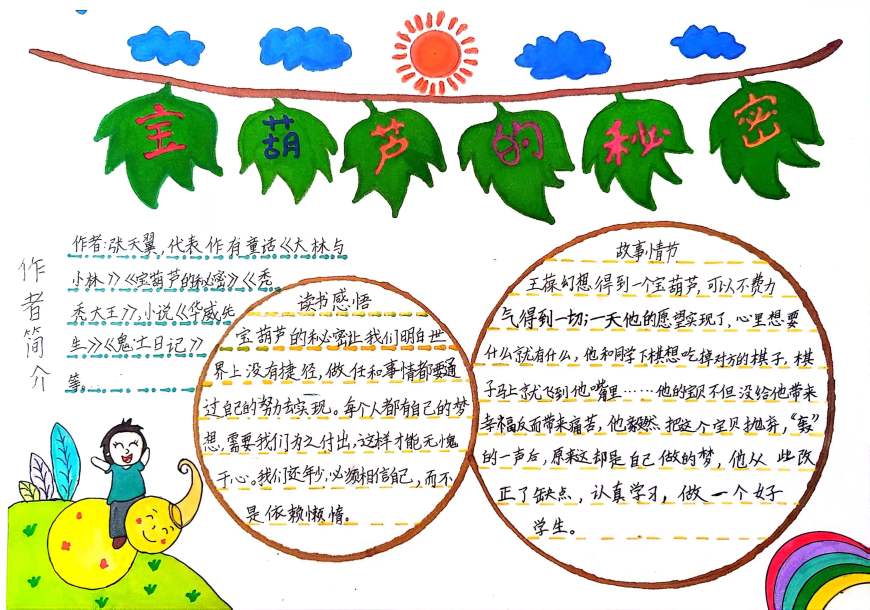 宝葫芦的秘密
作者简介
作者:张天翼,代表作有童话《大林与
小林》《宝葫芦的秘密》《秃
秃大王》,小说《华威先
生》《鬼土日记》
等。
读书感悟
宝葫芦的秘密让我们明白世
界上没有捷径,做任和事情都要通
过自己的努力去实现。每个人都有自己的梦
想,需要我们为之付出,这样才能无愧
于心。我们还年少,必须相信自己,而不
是依赖懒惰。
故事情节
王葆幻想得到一个宝葫芦,可以不费力
气得到一切;一天他的愿望实现了,心里想要
什么就有什么,他和同学下棋想吃掉对方的棋子,棋
子马上就飞到他嘴里……他的宝贝不但没给他带来
幸福反而带来痛苦,他毅然把这个宝贝抛弃,“轰”
的一声后,原来这却是自己做的梦,他从此改
正了缺点,认真学习,做一个好
学生。